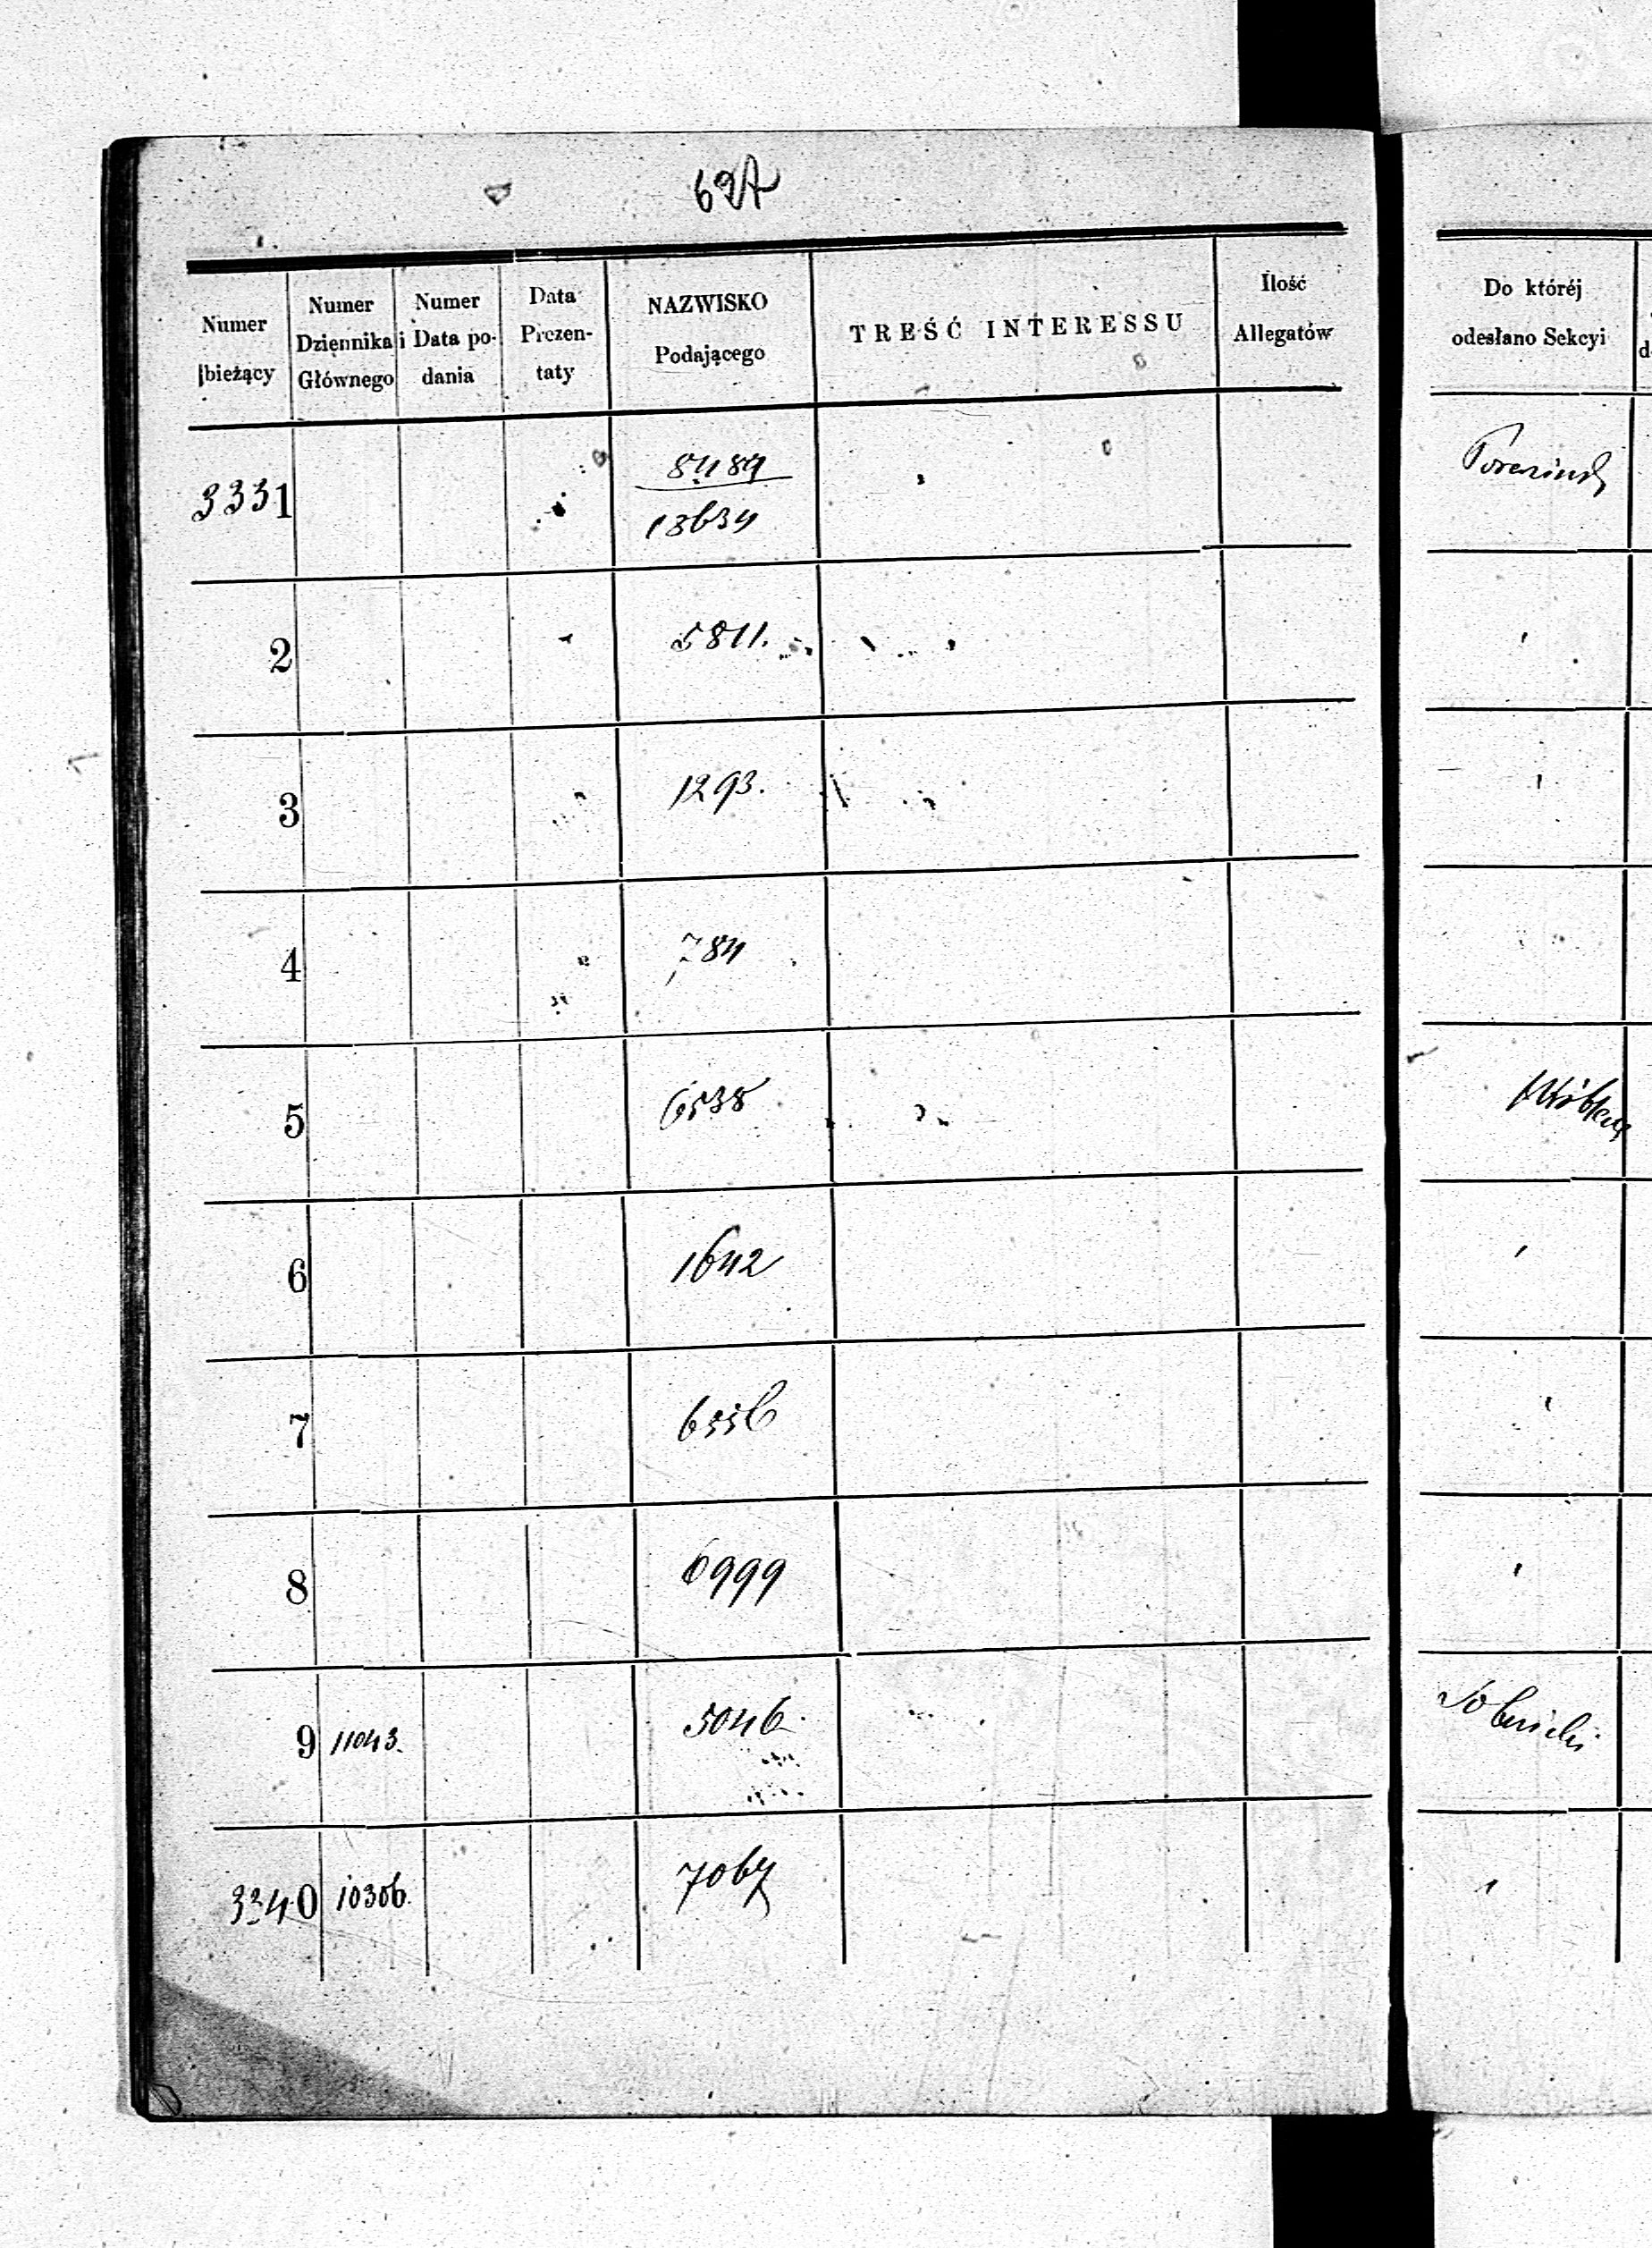 627
Numer bieżący | Numer Dziennika Głównego | Numer i Data podania | Data Prezentaty | NAZWISKO Podającego | TREŚĆ INTERESSU | Ilość Allegatów | Do któréj odesłano Sekcyi
3331 | 8484
13634
2 | 5811.
3 | 1293.
4 | 784
5 | 6538
6 | 1642
7 | 6556
8 | 6999
9 | 11043. | 5046
3340 | 10306. | 7067